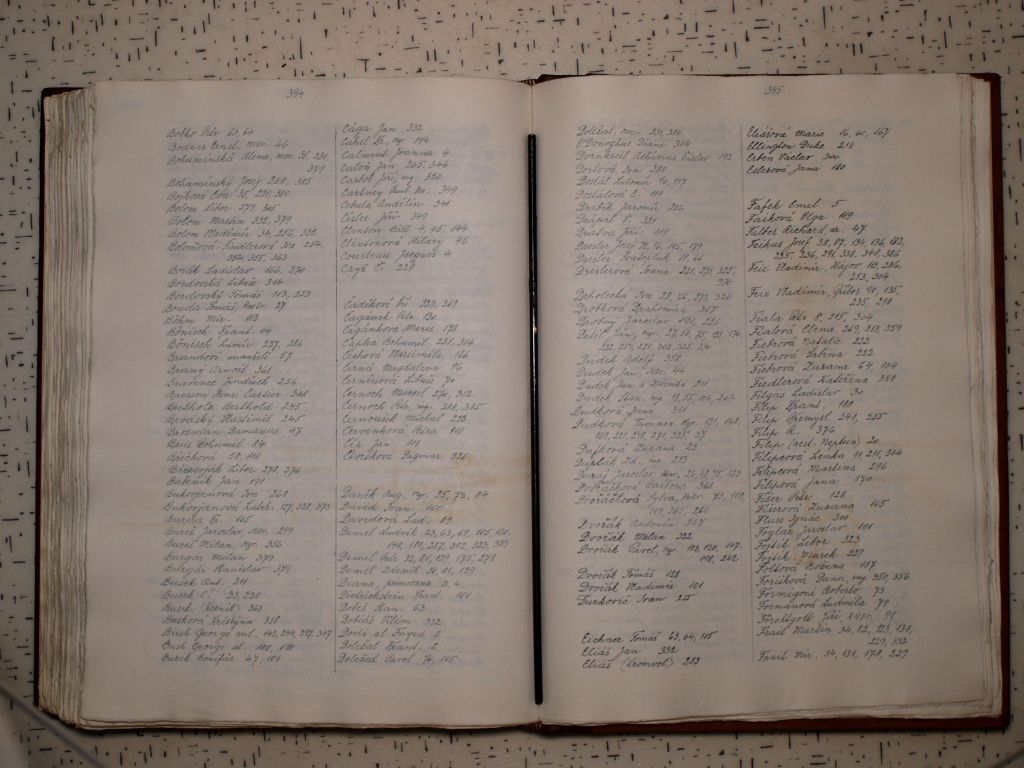 394
Bobko Petr 63, 64
Bodner Ernst, 46
Bohumínská Alena,
379
Bohumínský Josef 288, 385
Bojková Eva 35, 291, 380
Bolom Libor 279, 365
Bolom Martin 332, 379
Bolom Vladimír 34, 256, 332
Bolomová-Kindlerová Iva 254,
354, 355, 363
Borák Ladislav 166, 270
Bordovská Libuše 314
Bordovský Tomáš 113, 253
Bouda Tomáš, 27
Böhm Mir. 113
Bönisch Frant. 44
Bönisch Lumír 237, 286
Brandovi manželé 57
Branný Arnošt 361
Bravenec Jindřich 256
Bresson Henri Cartier 348
Brothole Berthold 245
Brodský Vlastimil 245
Brosman Damasius 47
Brus Bohumil 84
Břečková 58, 110
Březovják Libor 278, 376
Bubeník Jan 191
Bukorjanová Iva 260
Bukorjanová Kateř. 127, 328, 373
Burda Fr. 165
Bureš Jaroslav, 299
Bureš Milan, 332
Burgar Milan 379
Burgár Stanislav 379
Buriček Ant. 211
Busek Č. 33, 230
Busek (řezník) 363
Busková Kristýna 358
Bush George ml. 143, 244, 297, 347
Bush George st. 100, 180
Buzek Bonifác 47, 101
Cága Jan 332
Cahel Fr., 144
Calment Joanna 4
Calon Jan, 265, 346
Carbol Jiří, ing. 350
Cartney Paul Mc. 349
Cebula Andělín 341
Císler Jiří 349
Clinton Bill 4, 45, 144
Clintonová Hilary 46
Cousteau Jacques 4
Cryš Č. 229
Cadíková Fr. 324, 369
Čagánek Petr 130
Čagánková Marie 178
Čapka Bohumil 231, 314
Čechová Vlastimila 166
Černá Magdalena 96
Černínová Libuš 70
Černoch Marcel 270, 312
Černoch Petr, ing. 288, 385
Černoušek Michal 238
Červenková Petra 110
Číp Jan 118
Čtvrtková Dagmar 326
Daněk Aug. 25, 73, 84
David Ivan 100
Davidová Lad. 89
Demel Ludvík 23, 63, 69, 105, 130,
148, 180, 257, 303, 323, 339
Demel Petr 32, 81, 129, 175, 278
Demel Zdeněk 18, 81, 129
Diana, princezna 3, 4
Dietrichstein Frant. 101
Dobeš Stan. 63
Dobiáš Vilém 332
Dodi al Fayed 3
Doležal Frant. 2
Doležal Pavel 70, 165
395
Doležal, 331, 380
O'Donoghue Diane 314
Dornkreil Acharius Václav 192
Dorlová Iva 238
Dostál Antonín 90, 117
Dostálová E. 144
Drabík Jaromír 236
Drápal V. 331
Drátva Jiří 119
Dresler Josef 72, 94, 105, 179
Dresler Svatopluk 18, 66
Dreslerová Ivana 231, 271, 325,
370
Drholecká Iva 28, 76, 273, 326
Drobková Drahomíra 367
Drobný Jaroslav 191, 221
Dudek Adolf 358
Dudek Jan, 44
Dudek Jan a Zdenka 211
Dudek Stan. ing. 13, 55, 207
Dudková Irena 351
Dudková Tamara 121, 148,
169, 231, 238, 271, 325, 37
Dufková Zuzana 23
Dušek Zd. ing. 213
Dvořáčková Barbora 368
Dvořáčková Sylva, 73, 119,
119, 265, 266
Dvořák Antonín 367
Dvořák Milan 332
Dvořák Pavel, 113, 120, 147,
148, 262
Dvořák Tomáš 121
Dvořák Vladimír 101
Ďurkovič Ivan 215
Eichner Tomáš 63, 64, 105
Eliáš Jan 332
Eliáš (Kromvel) 253
Eliášová Marie 16, 60, 167
Ellington Duke 218
Erben Václav 300
Esterová Jana 180
Fafek Emil 5
Fajková Olga 119
Falter Richard, dr. 47
Feikus Josef 38, 87, 134, 136, 182,
235, 236, 291, 338, 340, 386
Feil Vladimír, Hájov 113, 286,
253, 304
Feix Vladimír, Příbor 70, 135,
235, 298
Fiala Petr 8, 215, 304
Fialová Elena 269, 313, 359
Fiebrová Natálie 222
Fiebrová Sabina 222
Fiebrová Zuzana 64, 104
Fiedlerová Kateřina 380
Filgas Ladislav 30
Filip Frant. 180
Filip Přemysl 248, 255
Filip R. 376
Filip (rest. Neptun) 20
Filipcová Lenka 11, 211, 304
Filipcová Martina 296
Filipová Jana 170
Fišer Petr 128
Fišerová Zuzana 165
Fluss Ignác 300
Foglar Jaroslav 101
Fojtík Libor 323
Fojtík Marek 229
Foltová Božena 187
Forišková Dana, ing. 250, 356
Formigoni Roberto 73
Formánová Ludmila 79
Forchtgott Jiří, 71
Frait Martin 34, 82, 123, 130,
239, 332
Frait Mir. 34, 131, 178, 229